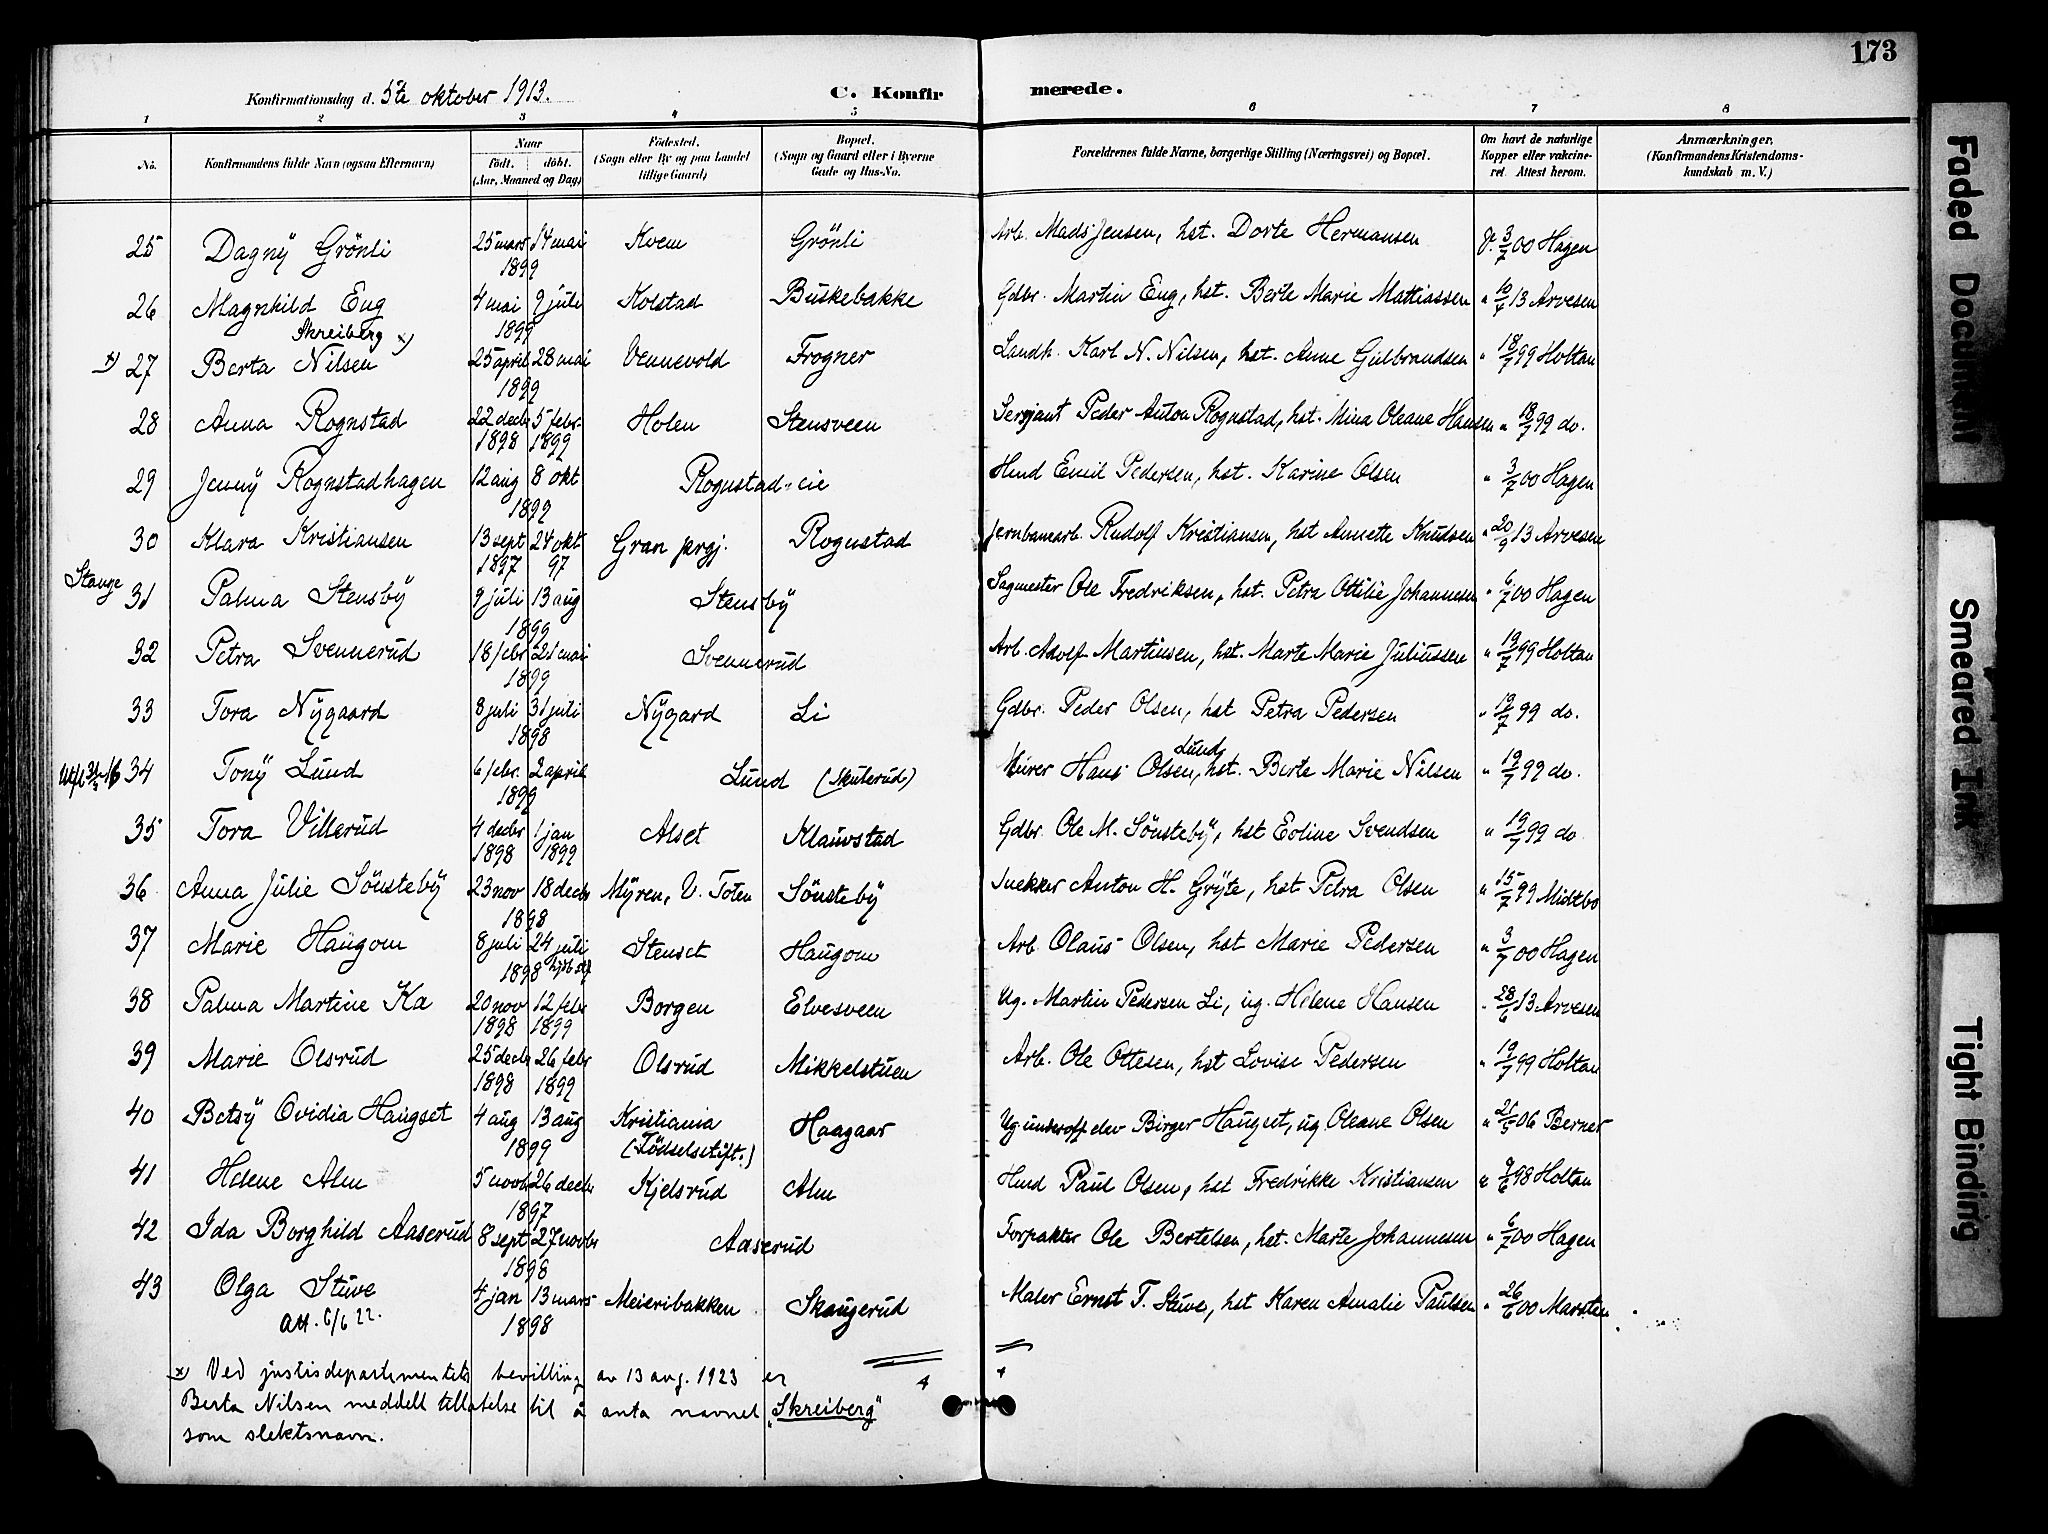 173
Konfirmationsdag d. 5te oktober 1913.
C. Konfirmerede.
1 2 3 4 5 6 7 8
No. Konfirmandens fulde Navn (ogsaa Efternavn) Naar födt. döbt. (Aar, Maaned og Dag) Födested. (Sogn eller By og paa Landet tillige Gaard) Bopæl. (Sogn og Gaard eller i Byerne Gade og Hus-No. Forældrenes fulde Navne, borgerlige Stilling (Næringsvei) og Bopæl. Om havt de naturlige Kopper eller vakcineret. Attest herom. Anmærkninger. (Konfirmandens Kristendomskundskab m. V.)
25 Dagny Grönli 25 mars 14 mai 1899 Kvem Grönli Arb. Mads Jensen, hst. Dorte Hermansen J. 3/7 00 Hagen
26 Magnhild Eng 4 mai 9 juli 1899 Kolstad Buskebakke Gdbr. Martin Eng, hst. Berte Marie Mattiassen " 10/7 13 Arvesen
Skreiberg x)
x) 27 Berta Nilsen 25 april 28 mai 1899 Vennevold Frogner Landh. Karl N. Nilsen, hst. Anne Gulbrandsen " 18/7 99 Holtan
28 Anna Rognstad 22 decbr 1898 5 febr. 1899 Holen Stensveen Sersjant Peder Anton Rognstad, hst. Mina Oleane Hansen " 18/7 99 do.
29 Jenny Rognstadhagen 12 aug 8 okt 1899 Rognstad-eie Hmd Emil Pedersen, hst. Karine Olsen " 3/7 00 Hagen
30 Klara Kristiansen 13 sept 1897 24 okt 97 Gran prgj. Rognstad Jernbanearb. Rudolf Kristiansen, hst Annette Knudsen " 20/9 13 Arvesen
Stange 31 Palma Stensby 9 juli 13 aug 1899 Stensby Sagmester Ole Fredriksen, hst. Petra Ottilie Johannesen " 6/7 00 Hagen
32 Petra Svennerud 18 febr 21 mai 1899 Svennerud Arb. Adolf Martinsen, hst. Marte Marie Juliussen " 19/7 99 Holtan
33 Tora Nygaard 8 juli 31 juli 1898 Nygard Li Gdbr. Peder Olsen, hst Petra Pedersen " 19/7 99 do.
34 Tony Lund 6 febr. 2 april 1899 Lund (Skuterud) Murer Hans Olsen Lund, hst. Berte Marie Nilsen " 19/7 99 do.
35 Tora Villerud 4 decbr 1898 1 jan 1899 Alset Klauvstad Gdbr. Ole M. Sönsteby, hst Eoline Svendsen " 19/7 99 do
36 Anna Julie Sönsteby 23 nov 18 decbr 1898 Myren, V. Toten Sönsteby Snekker Anton H. Gryte, hst Petra Olsen " 15/7 99 Midtbo
37 Marie Haugom 8 juli 24 juli 1898 Stenset Haugom Arb. Olaus Olsen, hst Marie Pedersen " 3/7 00 Hagen
38 Palma Martine Ka 20 nov 1898 12 febr 1899 Borgen Elvesveen Ug. Martin Pedersen Li, ug. Helene Hansen " 28/6 13 Arvesen
39 Marie Olsrud 25 decbr 1898 26 febr 1899 Olsrud Mikkelstuen Arb. Ole Ottesen, hst Lovise Pedersen " 19/7 99 Holtan
40 Betsy Ovidia Haugset 4 aug 13 aug 1899 Kristiania (Födselsstift.) Haagaar Ug underoff. elev Birger Haugset, ug. Oleane Olsen " 21/5 06 Berner
41 Helene Alm 5 novb 26 decbr 1897 Kjelsrud Alm Hmd Paul Olsen, hst Fredrikke Kristiansen " 9/6 98 Holtan
42 Ida Borghild Aaserud 8 sept 27 novbr 1898 Aaserud Forpakter Ole Bertelsen, hst. Marte Johannesen " 6/7 00 Hagen
43 Olga Stuve 4 jan 13 mars 1898 Meieribakken Skaugerud Maler Ernst T. Stuve, hst Karen Amalie Paulsen " 26/6 00 Marsten
Att. 6/6 22.
x) Ved justisdepartementets bevilling av 13 aug. 1923 er
Berta Nilsen meddelt tillatelse til å anta navnet "Skreiberg"
som slektsnavn.
4 4
Faded Document
Smeared Ink
Tight Binding